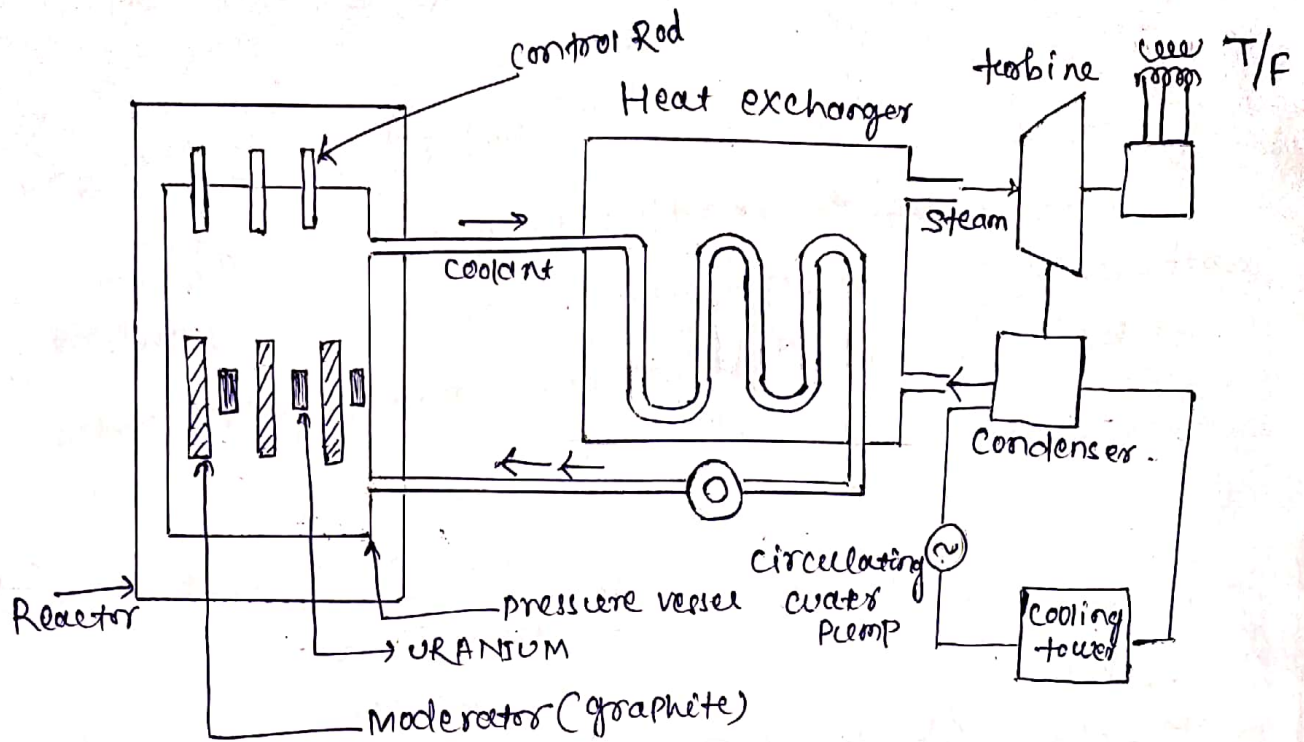 Control Rod
Heat exchanger
turbine
T/F
Steam
Coolant
Condenser.
Circulating
water
Pump
Cooling
tower
Reactor
pressure vessel
URANIUM
Moderator (graphite)